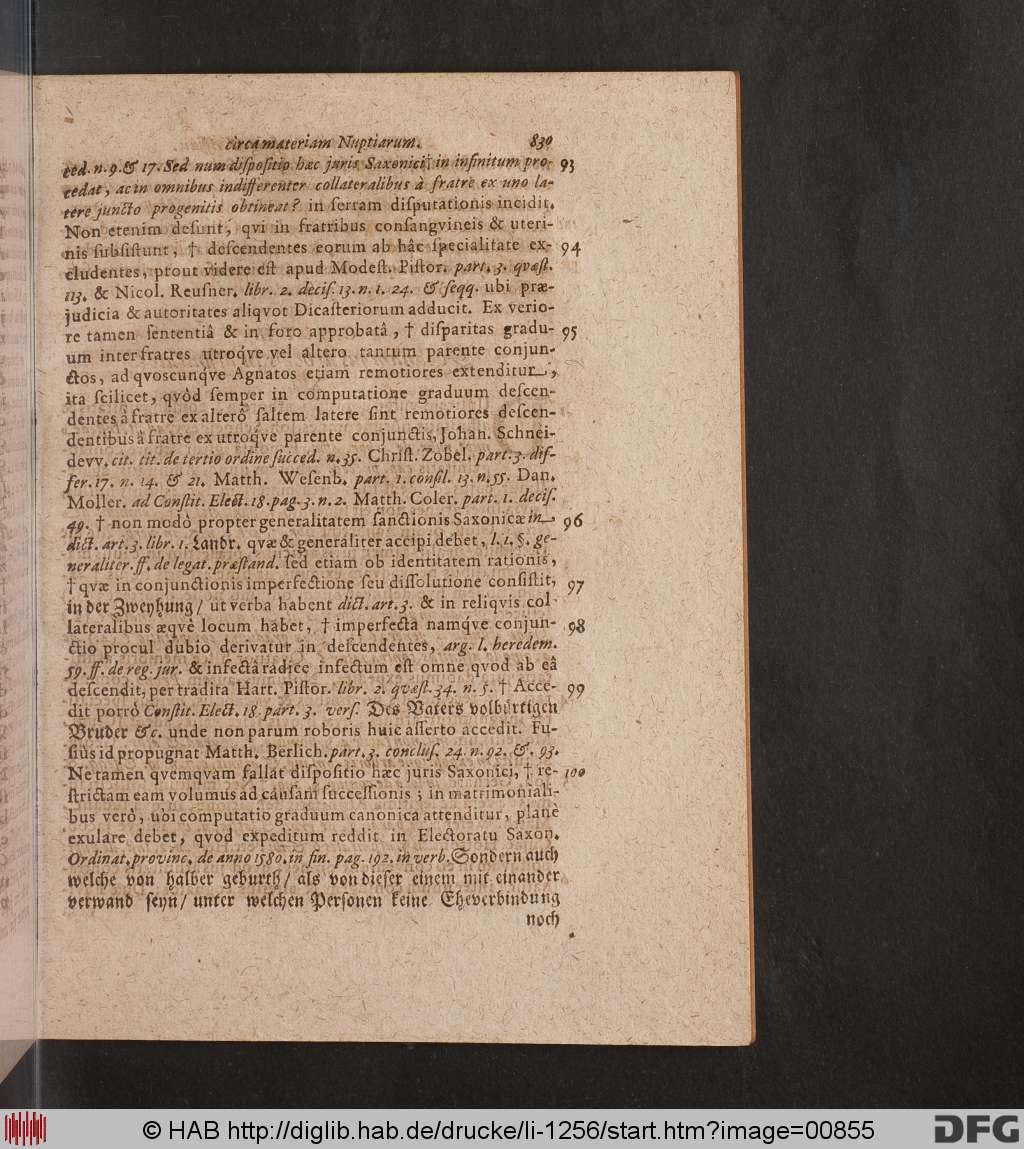 circa materiam Nuptiarum. 830
eed. n. 9. & 17. Sed num dispositio hæc juris Saxonici † in infinitum pro- 93
cedat, ac in omnibus indifferenter collateralibus à fratre ex uno la-
tere juncto progenitis obtineat? in serram disputationis incidit.
Non etenim desunt, qvi in fratribus consangvineis & uteri-
nis subsistunt, † descendentes eorum ab hâc specialitate ex- 94
cludentes, prout videre est apud Modest. Pistor. part. 3. qvæst.
113. & Nicol. Reusner. libr. 2. decis. 13. n. 1. 24. & seqq. ubi præ-
judicia & autoritates aliqvot Dicasteriorum adducit. Ex verio-
re tamen sententiâ & in foro approbatâ, † disparitas gradu- 95
um inter fratres utroq́ve vel altero tantum parente conjun-
ctos, ad qvoscunq́ve Agnatos etiam remotiores extenditur,
ita scilicet, qvòd semper in computatione graduum descen-
dentes â fratre ex alterô saltem latere sint remotiores descen-
dentibus â fratre ex utroq́ve parente conjunctis, Johan. Schnei-
devv. cit. tit. de tertio ordine succed. n. 35. Christ. Zobel. part. 3. dif-
fer. 17. n. 14. & 21. Matth. Wesenb. part. 1. consil. 13. n. 55. Dan.
Moller. ad Constit. Elect. 18. pag. 3. n. 2. Matth. Coler. part. 1. decis.
49. † non modò propter generalitatem sanctionis Saxonicæ in 96
dict. art. 3. libr. 1. Landr. qvæ & generaliter accipi debet, l. 1. §. ge-
neraliter. ff. de legat. præstand. sed etiam ob identitatem rationis,
† qvæ in conjunctionis imperfectione seu dissolutione consistit, 97
in der Zweyhung/ ut verba habent dict. art. 3. & in reliqvis col-
lateralibus æqvè locum habet, † imperfecta namq́ve conjun- 98
ctio procul dubio derivatur in descendentes, arg. l. heredem.
59. ff. de reg. jur. & infectâ radice infectum est omne qvod ab eâ
descendit, per tradita Hart. Pistor. libr. 2. qvæst. 34. n. 5. † Acce- 99
dit porrò Constit. Elect. 18. part. 3. vers. Des Vaters volbürtigen
Bruder &c. unde non parum roboris huic asserto accedit. Fu-
siùs id propugnat Matth. Berlich. part. 3. conclus. 24. n. 92. &. 93.
Ne tamen qvemqvam fallat dispositio hæc juris Saxonici, † re- 100
strictam eam volumus ad causam successionis ; in matrimoniali-
bus verò, ubi computatio graduum canonica attenditur, planè
exulare debet, qvod expeditum reddit in Electoratu Saxon.
Ordinat. provinc. de anno 1580. in fin. pag. 192. in verb. Sondern auch
welche von halber geburth/ als von dieser einem mit einander
verwand seyn/ unter welchen Personen keine Eheverbindung
noch
© HAB http://diglib.hab.de/drucke/li-1256/start.htm?image=00855
DFG